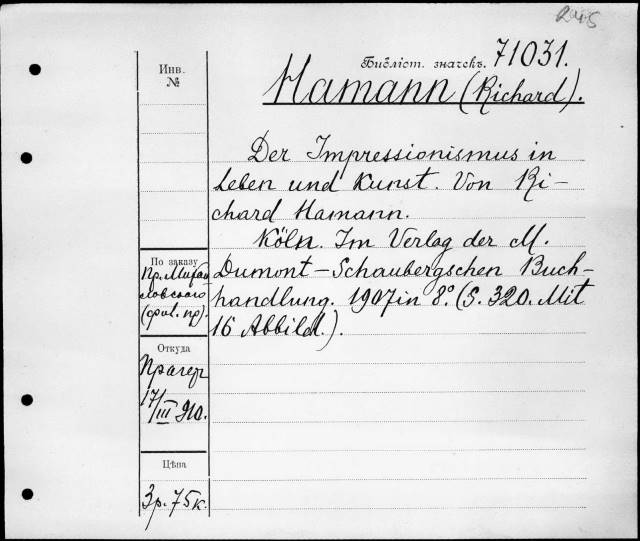 Библіот. значекъ. 71031.
Инв.
№
Hamann (Richard).
Der Impressionismus in
Leben und Kunst. Von Ri-
chard Hamann.
Köln. Im Verlag der M.
Dumont-Schaubergschen Buch-
handlung. 1907 in 8.° (S. 320. Mit
16 Abbild.).
По заказу
Пр. Михай-
ловского
Откуда
Прагер
17/III 910.
Цѣна
3 р. 75 к.